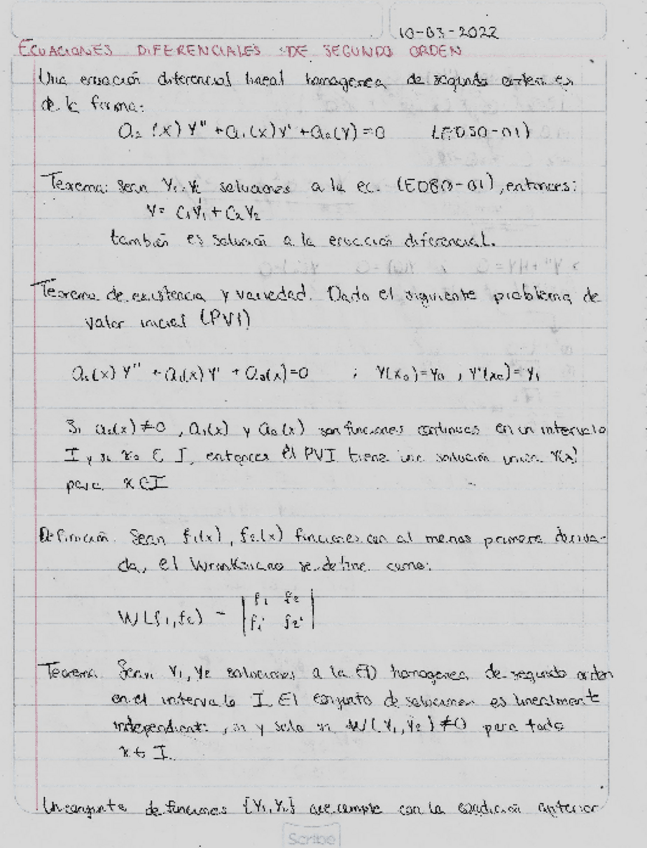 10-03-2022
ECUACIONES DIFERENCIALES DE SEGUNDO ORDEN
Una ecuación diferencial lineal homogenea de segundo orden es
de la forma:
a₂(x) Y'' + a₁(x) Y' + a₀(Y) = 0 (EDSO-01)
Teorema: Sean Y₁, Y₂ soluciones a la ec. (EDSO-01), entonces:
Y = C₁Y₁ + C₂Y₂
también es solución a la ecuación diferencial.
Teorema de existencia y Dado el siguiente problema de
valor inicial (PVI)
a₂(x) Y'' + a₁(x) Y' + a₀(x) = 0 ; Y(x₀) = Y₀ , Y'(x₀) = Y₁
Si a₂(x) ≠ 0 , a₁(x) y a₀(x) son funciones continuas en un intervalo
I y si x₀ ∈ I, entonces el PVI tiene una solución unica Y(x)
para x ∈ I
Definición. Sean f₁(x), f₂(x) funciones con al menos primera deriva-
da, el Wronkiano se define como:
W(f₁,f₂) = | f₁ f₂ |
| f₁' f₂' |
Teorema. Sean Y₁, Y₂ soluciones a la ED homogenea de segundo orden
en el intervalo I. El conjunto de soluciones es linealmente
independiente, si y solo si W(Y₁, Y₂) ≠ 0 para todo
x ∈ I.
Un conjunto de funciones {Y₁, Y₂} que cumple con la condición anterior
Scribe